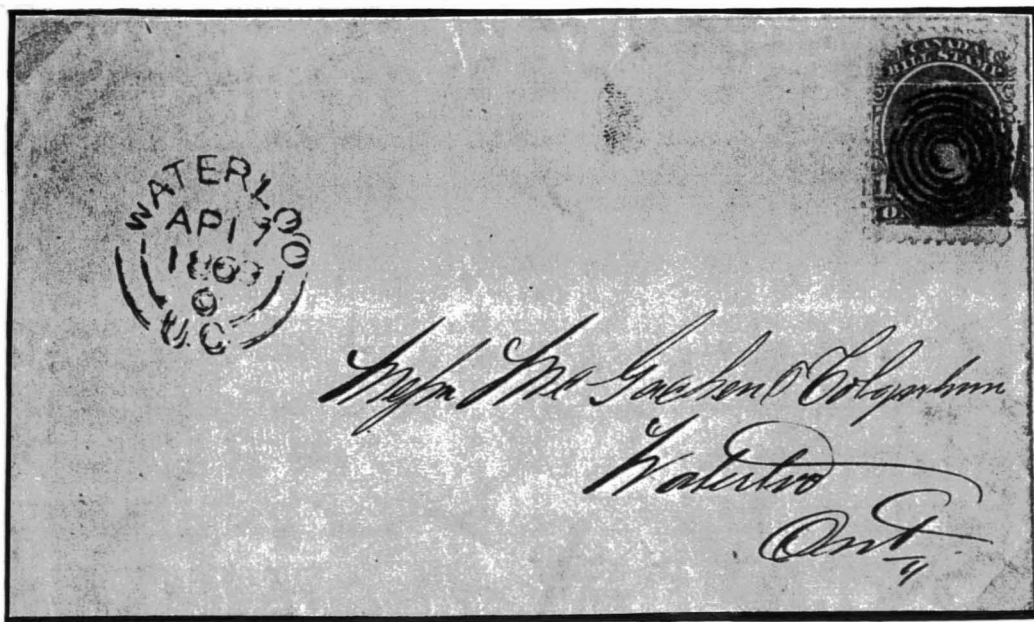 CANADA
BILL STAMP
WATERLOO
AP 17
1869
U.C.
Messrs McGaehen & Colquhoun
Waterloo
Ont